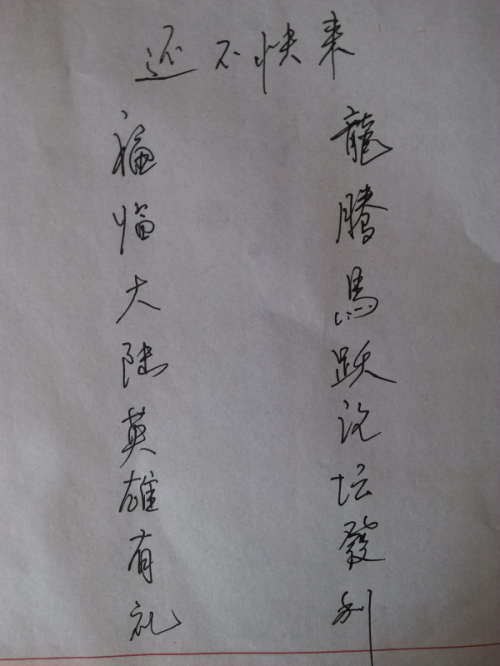 还不快来
龍腾馬跃论坛發利
福临大陆英雄有礼